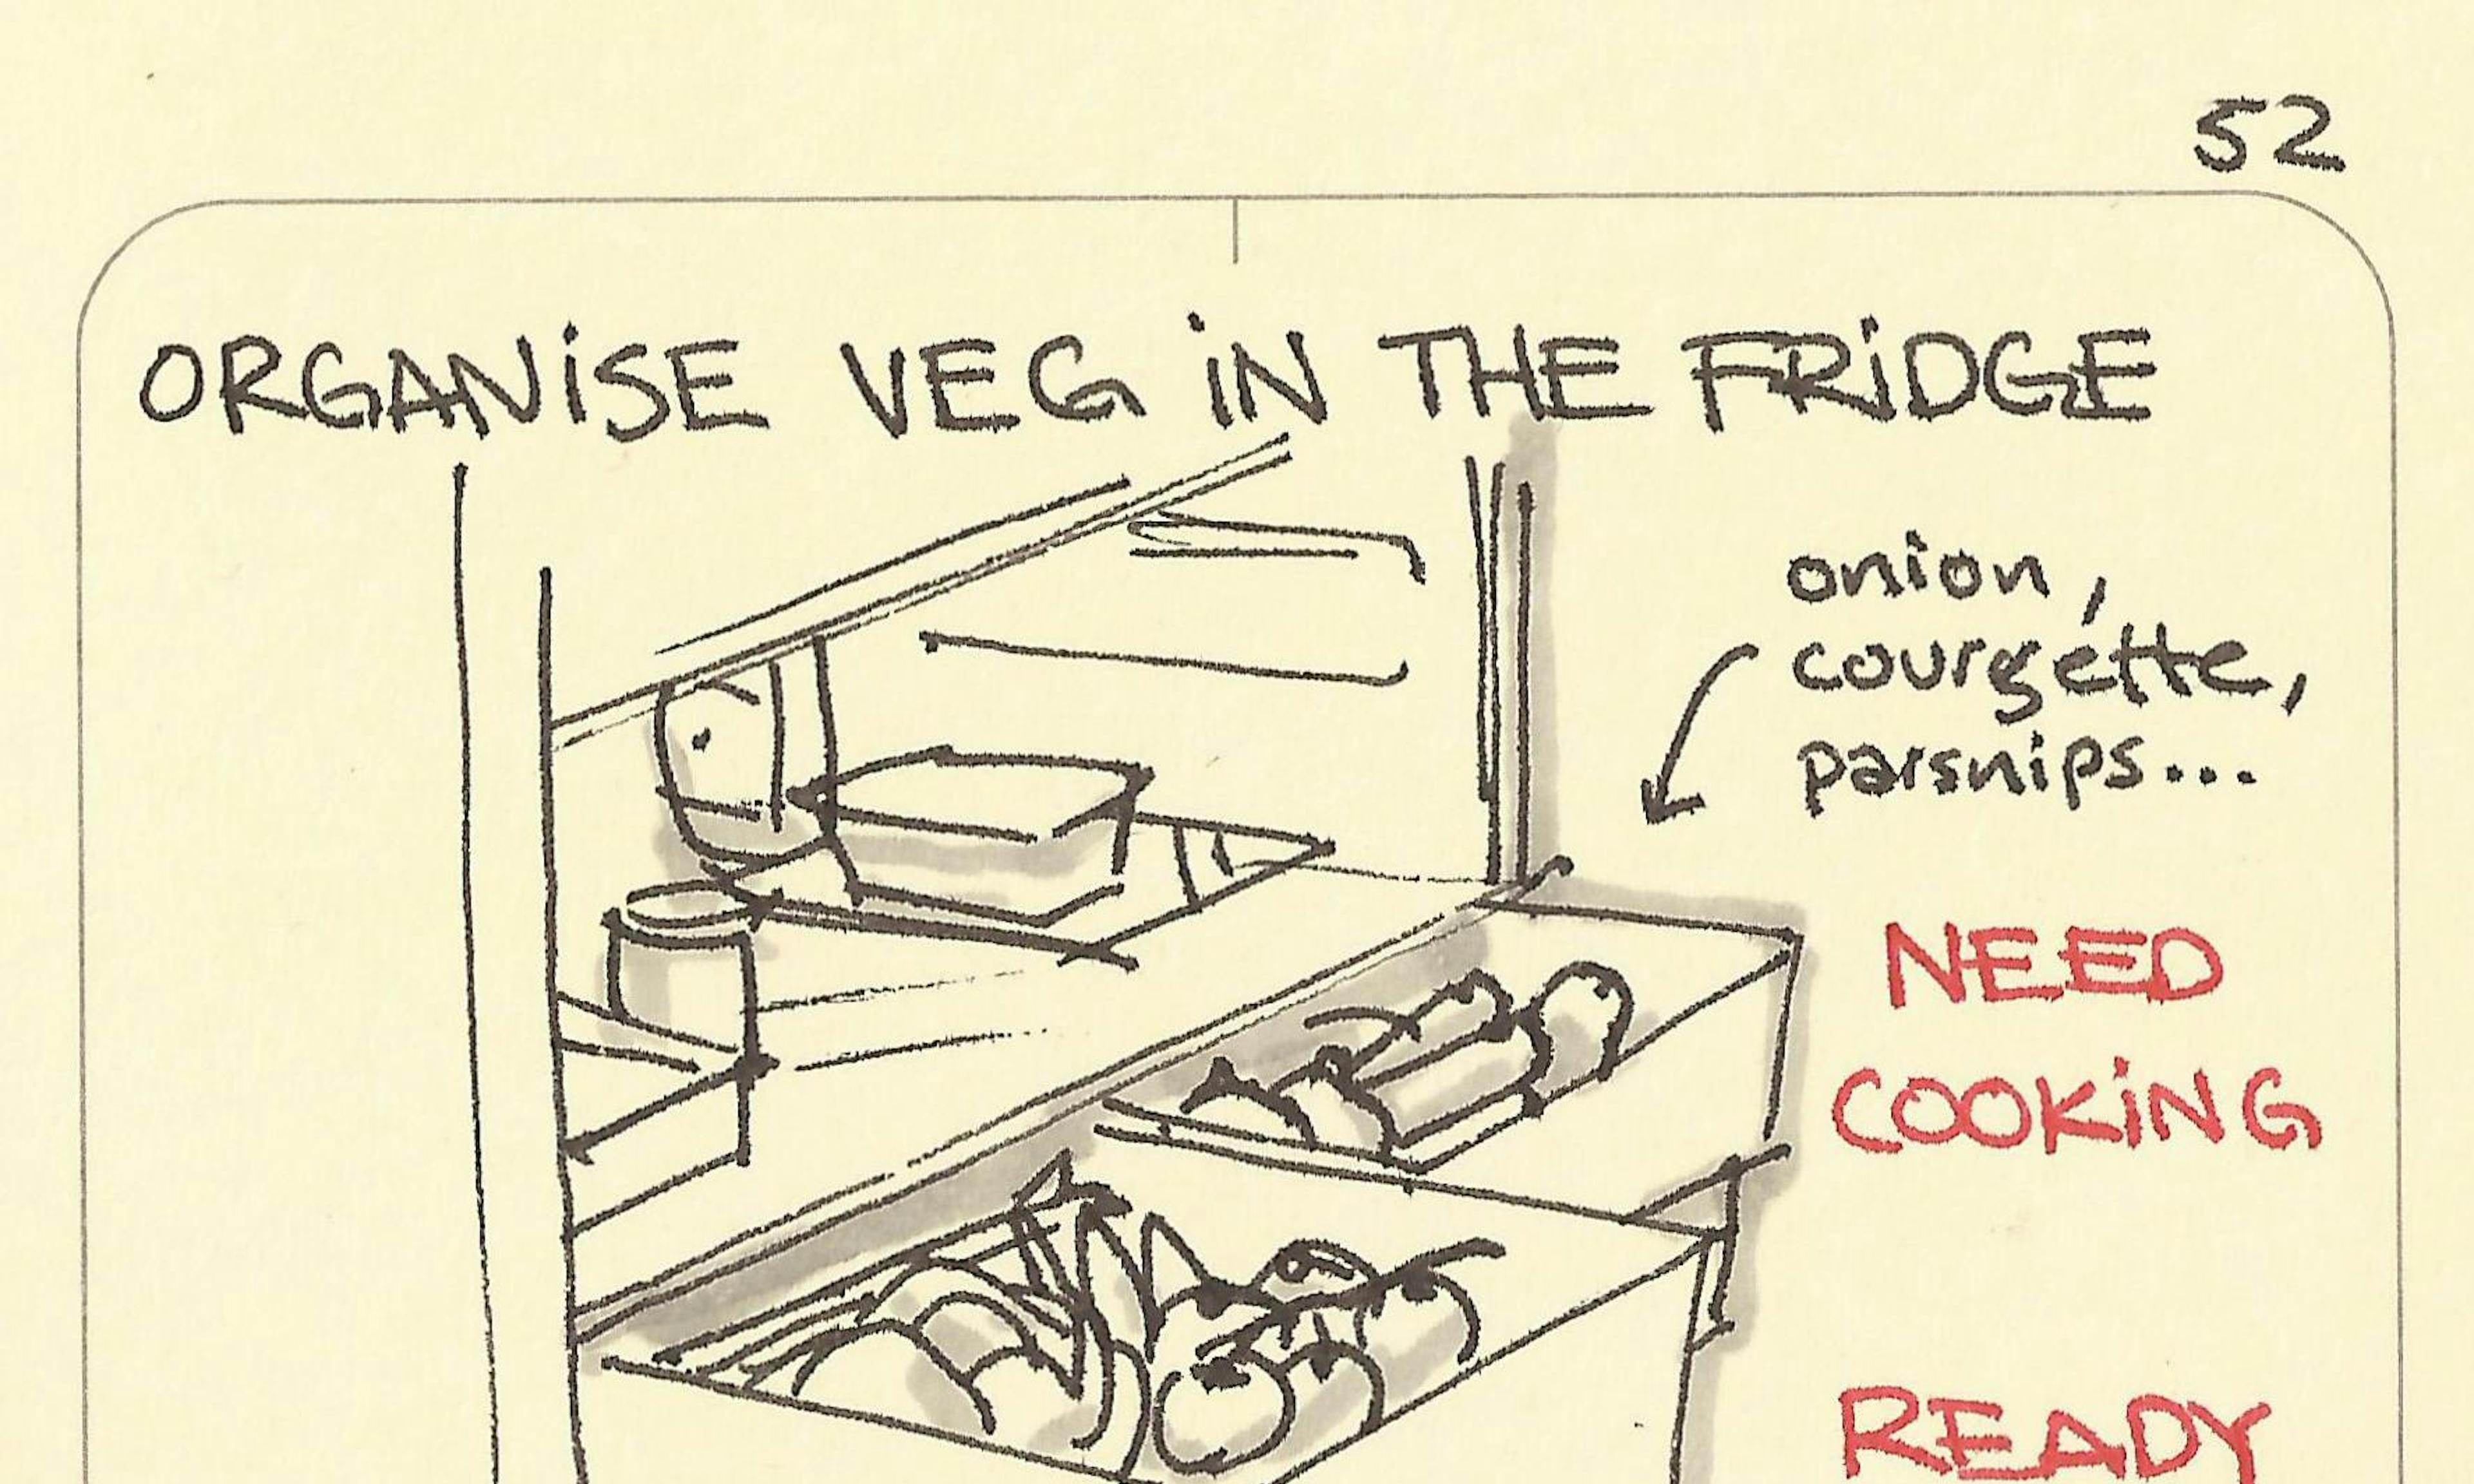 52
ORGANISE VEG IN THE FRIDGE
onion,
courgette,
parsnips...
NEED
COOKING
READY